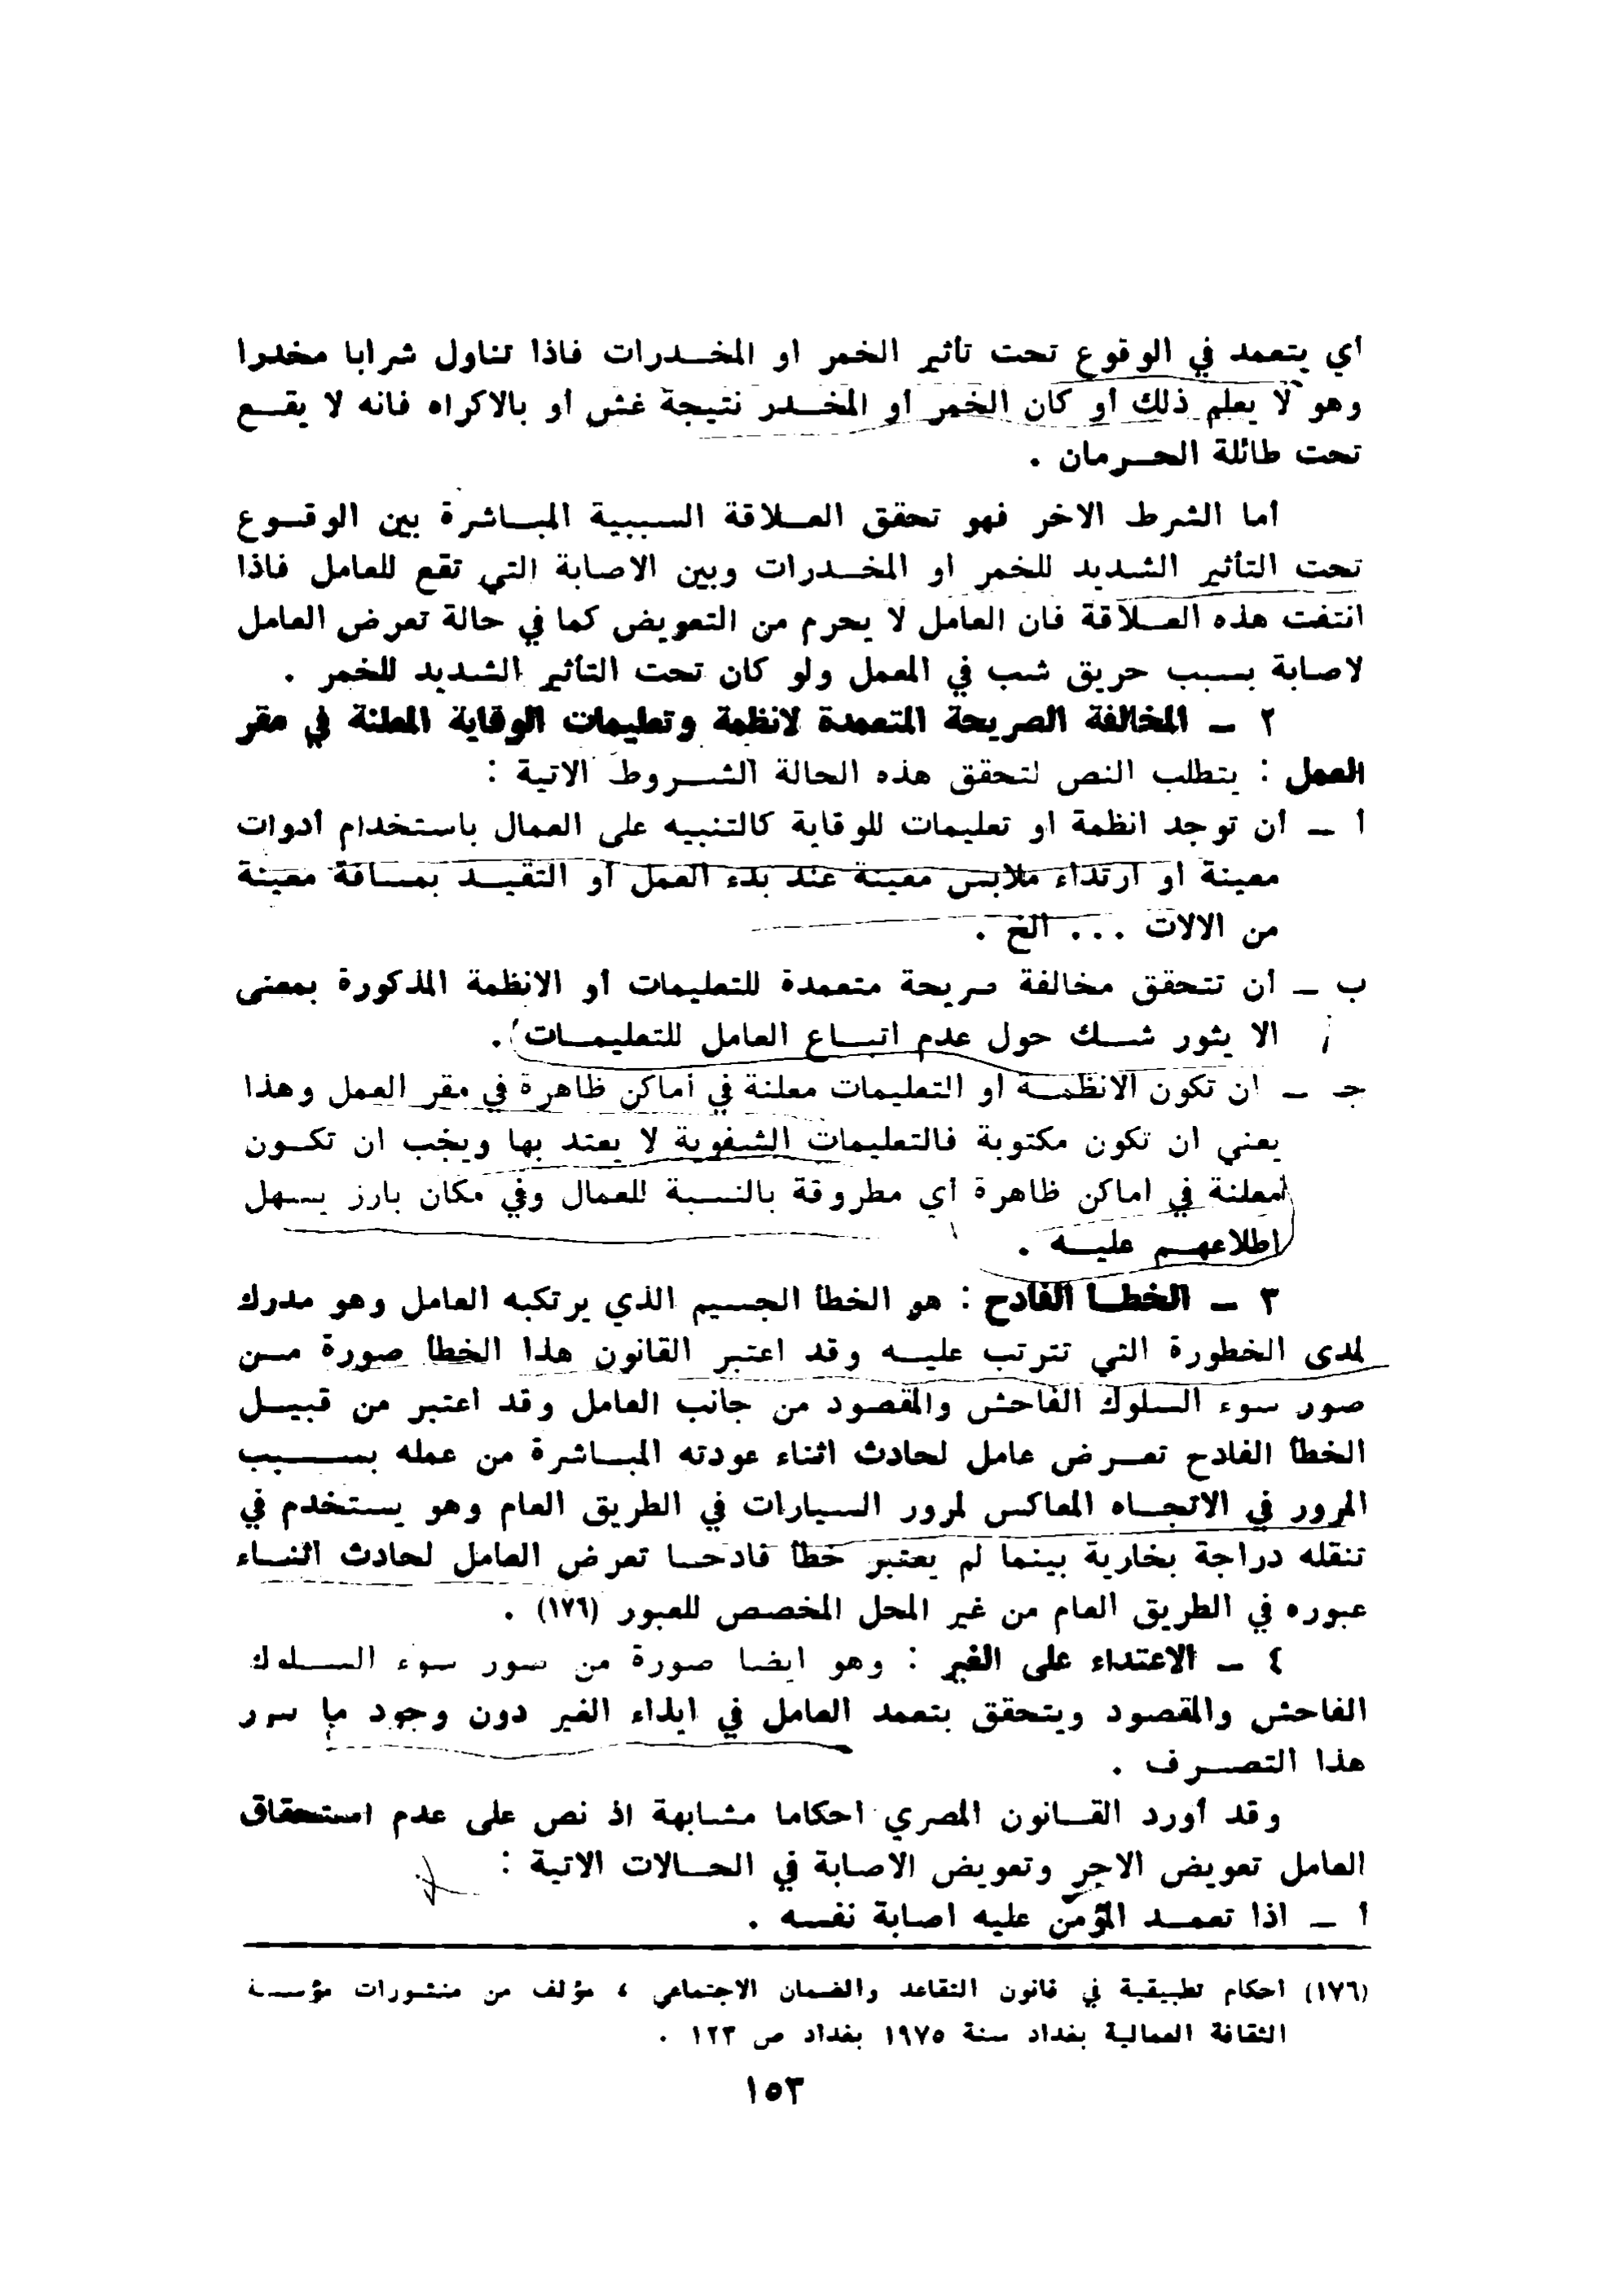 أي يتعمد في الوقوع تحت تأثير الخمر او المخدرات فاذا تناول شرابا مخدرا
وهو لا يعلم ذلك أو كان الخمر أو المخدر نتيجة غش أو بالاكراه فانه لا يقع
تحت طائلة الحرمان .
أما الشرط الاخر فهو تحقق العلاقة السببية المباشرة بين الوقوع
تحت التأثير الشديد للخمر او المخدرات وبين الاصابة التي تقع للعامل فاذا
انتفت هذه العلاقة فان العامل لا يحرم من التعويض كما في حالة تعرض العامل
لاصابة بسبب حريق شب في المعمل ولو كان تحت التأثير الشديد للخمر .
٢ - المخالفة الصريحة المتعمدة لانظمة وتعليمات الوقاية المعلنة في مقر
العمل : يتطلب النص لتحقق هذه الحالة الشروط الاتية :
أ - أن توجد انظمة او تعليمات للوقاية كالتنبيه على العمال باستخدام أدوات
معينة او ارتداء ملابس معينة عند بدء العمل أو التقيد بمسافة معينة
من الالات ... الخ .
ب - أن تتحقق مخالفة صريحة متعمدة للتعليمات أو الانظمة المذكورة بمعنى
الا يثور شك حول عدم اتباع العامل للتعليمات .
جـ - ان تكون الانظمة او التعليمات معلنة في أماكن ظاهرة في مقر العمل وهذا
يعني ان تكون مكتوبة فالتعليمات الشفوية لا يعتد بها ويجب ان تكون
معلنة في اماكن ظاهرة أي مطروقة بالنسبة للعمال وفي مكان بارز يسهل
اطلاعهم عليه .
٣ - الخطأ الفادح : هو الخطأ الجسيم الذي يرتكبه العامل وهو مدرك
لمدى الخطورة التي تترتب عليه وقد اعتبر القانون هذا الخطأ صورة من
صور سوء السلوك الفاحش والمقصود من جانب العامل وقد اعتبر من قبيل
الخطأ الفادح تعرض عامل لحادث اثناء عودته المباشرة من عمله بسبب
المرور في الاتجاه المعاكس لمرور السيارات في الطريق العام وهو يستخدم في
تنقله دراجة بخارية بينما لم يعتبر خطأ فادحا تعرض العامل لحادث اثناء
عبوره في الطريق العام من غير المحل المخصص للعبور (١٧٦) .
٤ - الاعتداء على الغير : وهو ايضا صورة من صور سوء السلوك
الفاحش والمقصود ويتحقق بتعمد العامل في ايذاء الغير دون وجود ما يبرر
هذا التصرف .
وقد أورد القانون المصري احكاما مشابهة اذ نص على عدم استحقاق
العامل تعويض الاجر وتعويض الاصابة في الحالات الاتية :
أ - اذا تعمد المؤمن عليه اصابة نفسه .
(١٧٦) احكام تطبيقية في قانون التقاعد والضمان الاجتماعي ، مؤلف من منشورات مؤسسة
الثقافة العمالية بغداد سنة ١٩٧٥ بغداد ص ١٢٣ .
١٥٣